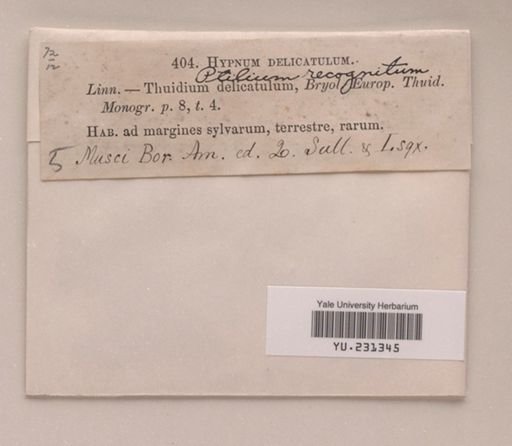 72
12
404. HYPNUM DELICATULUM.
Ptilium recognitum
Linn. — Thuidium delicatulum, Bryol Europ. Thuid.
Monogr. p. 8, t. 4.
HAB. ad margines sylvarum, terrestre, rarum.
5 Musci Bor. Am. ed. 2. Sull. & Lsqx.
Yale University Herbarium
YU.231345